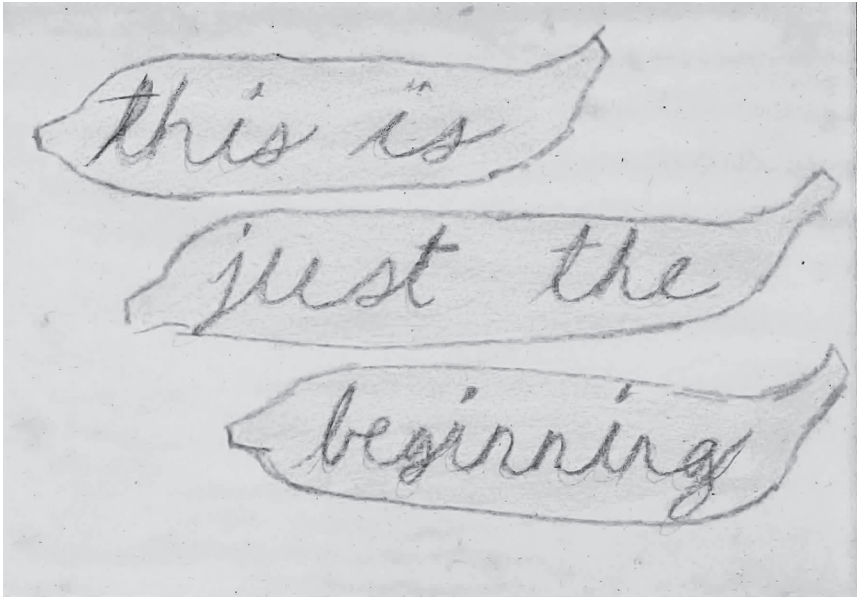 this is
just the
beginning